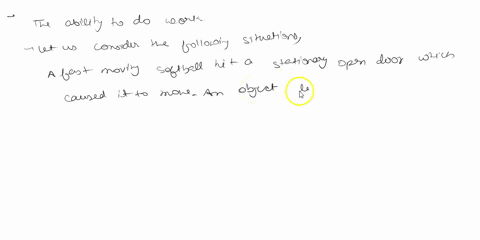 The ability to do work
→ Let us consider the following situations,
A fast moving softball hit a stationary open door which
caused it to move. An object